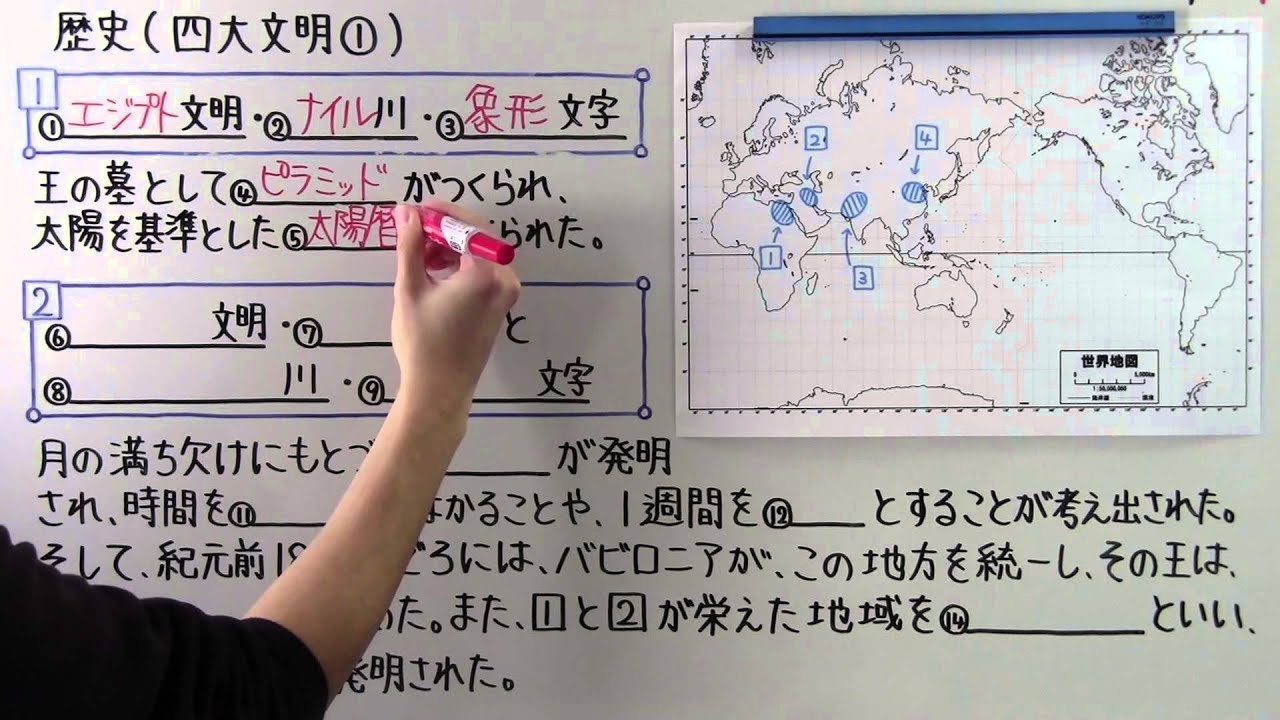 歴史(四大文明①)
1
①エジプト文明・②ナイル川・③象形文字
王の墓として④ピラミッドがつくられ、
太陽を基準とした⑤太陽暦られた。
2
⑥文明・⑦と
⑧川・⑨文字
月の満ち欠けにもとづが発明
され、時間を⑪はかることや、1週間を⑫とすることが考え出された。
そして、紀元前18ごろには、バビロニアが、この地方を統一し、その王は、
た。また、1と2が栄えた地域を⑭といい、
発明された。
2
4
1
3
世界地図